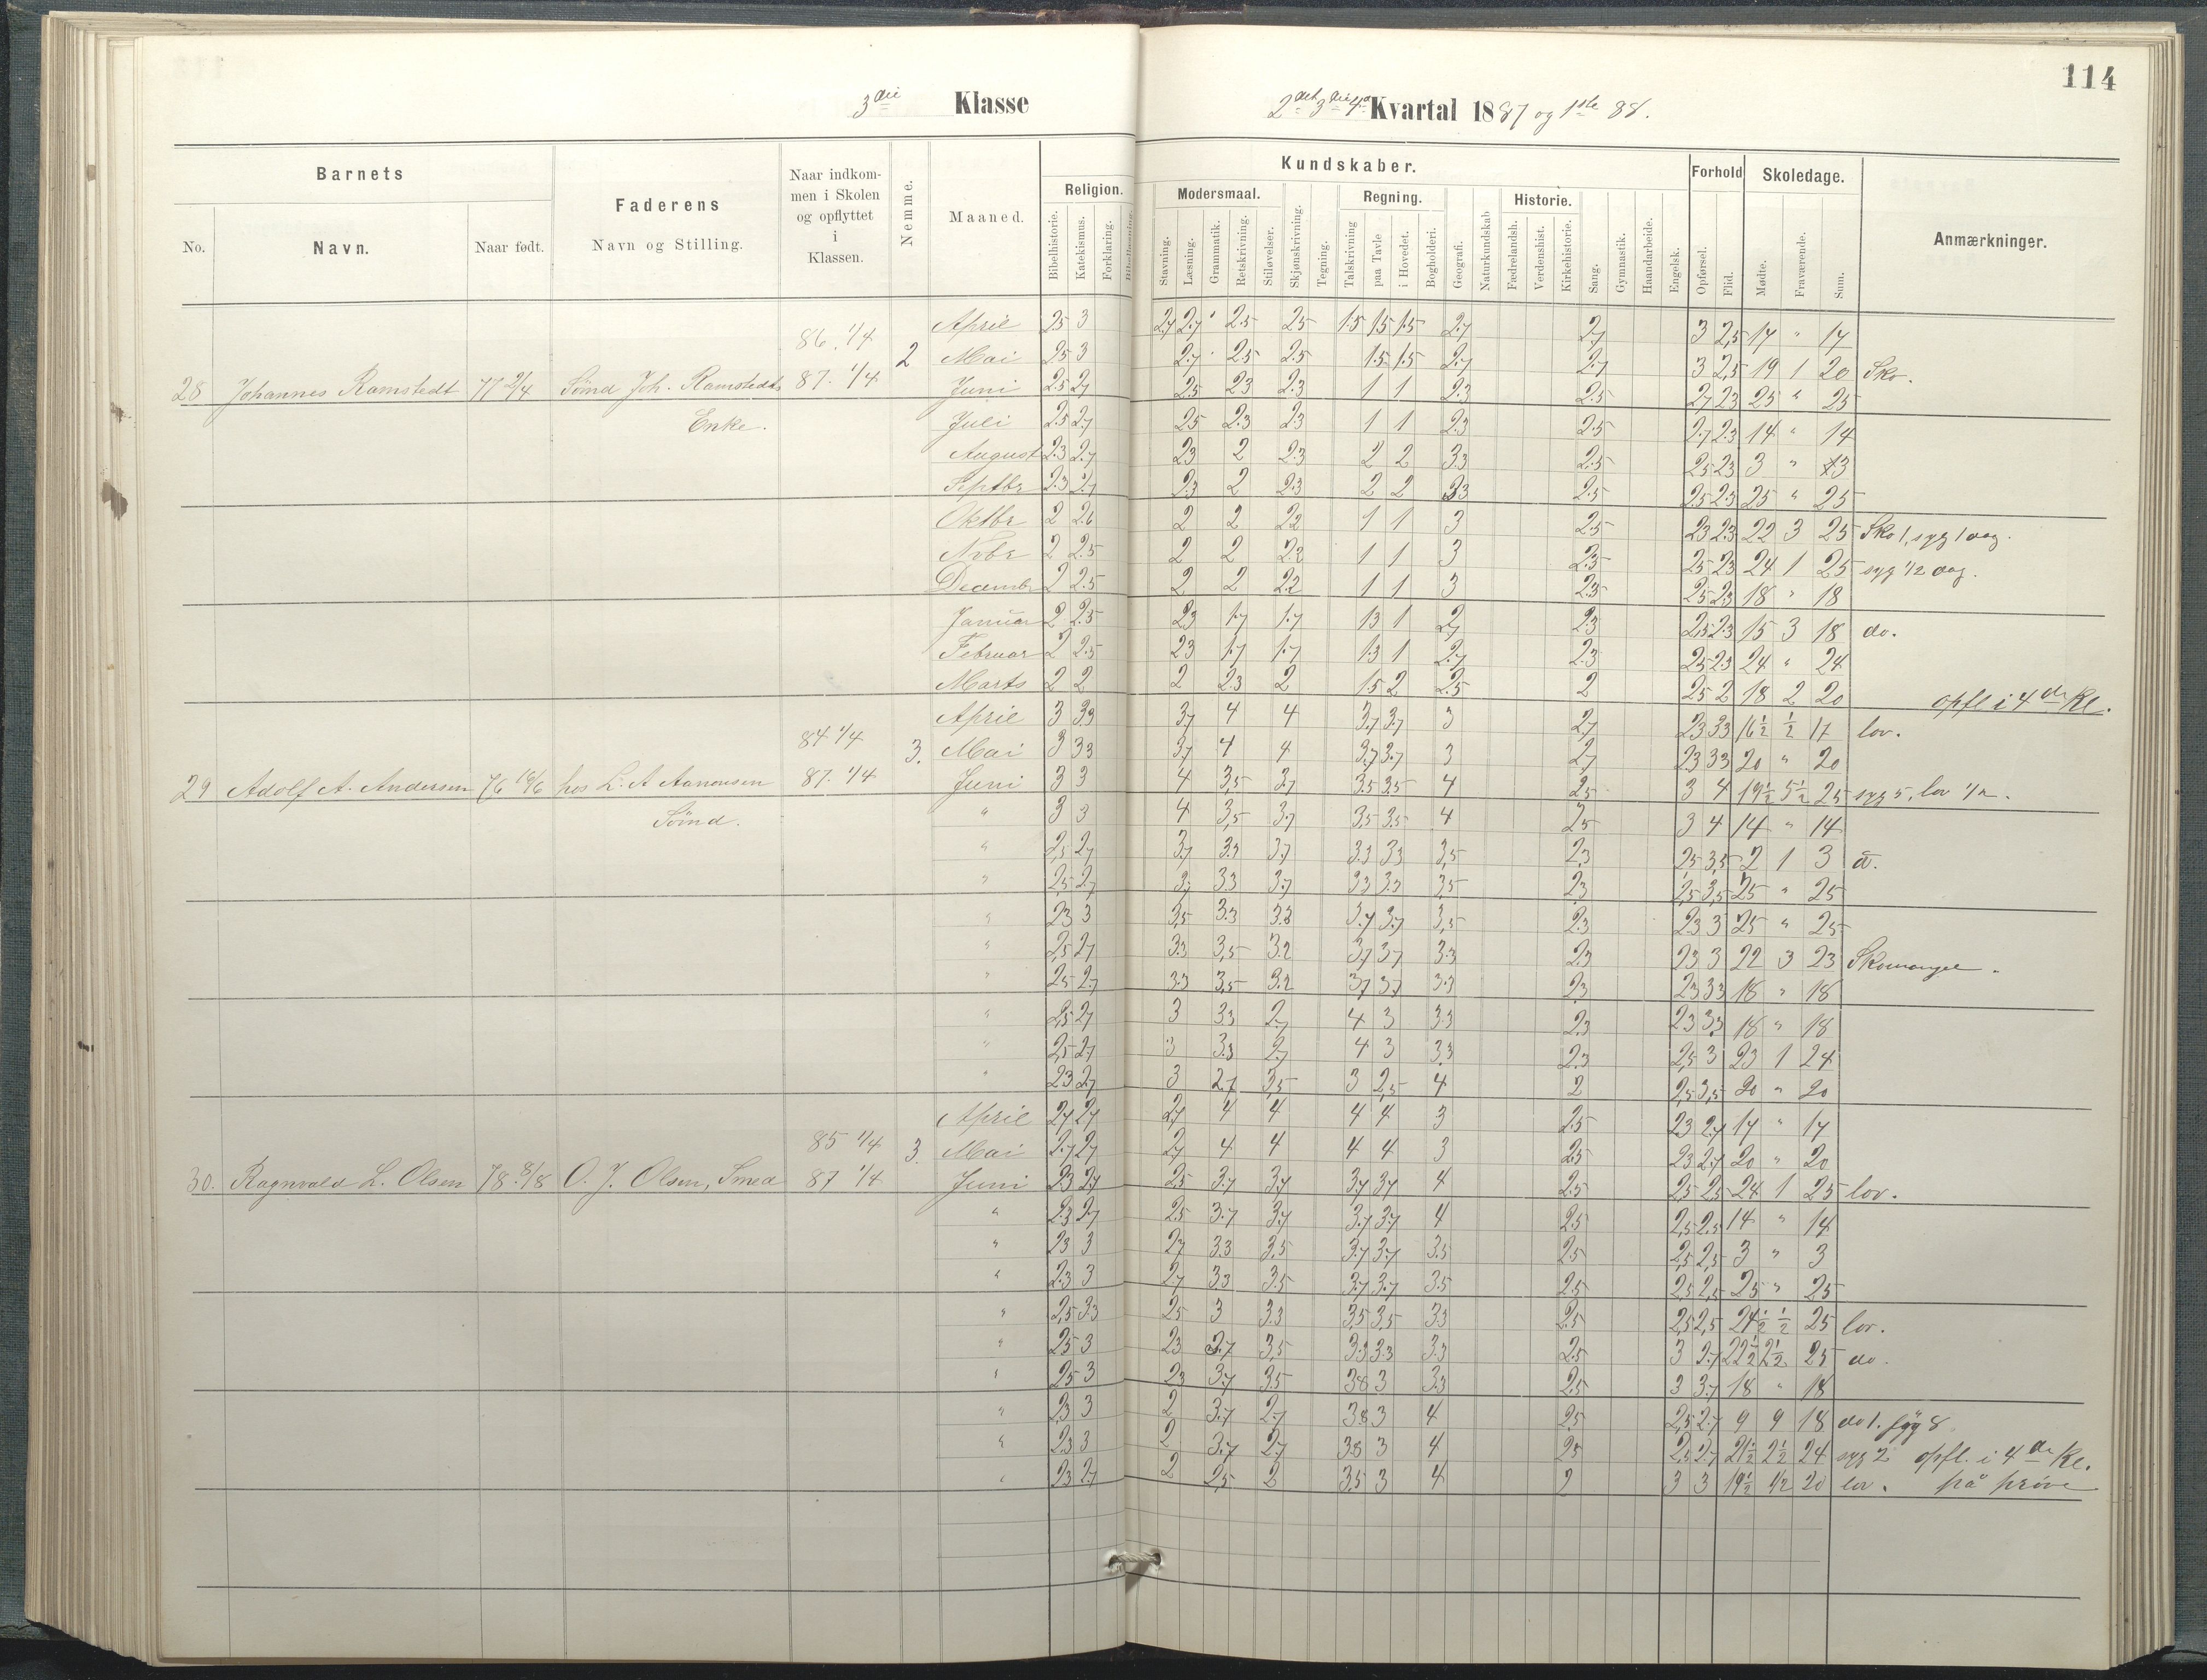 114
3die Klasse
2det 3die 4de Kvartal 1887 og 1ste 88.
Barnets
Faderens
Naar indkommen i Skolen og opflyttet i Klassen.
Nemme.
Maaned.
Kundskaber.
Forhold
Skoledage.
Anmærkninger.
No.
Navn.
Naar født.
Navn og Stilling.
Religion.
Modersmaal.
Regning.
Historie.
Bibelhistorie.
Katekismus.
Forklaring.
Bibellæsning.
Stavning.
Læsning.
Grammatik.
Retskrivning.
Stiløvelser.
Skjønskrivning.
Tegning.
Talskrivning
paa Tavle
i Hovedet.
Bogholderi.
Geografi.
Naturkundskab
Fædrelandsh.
Verdenshist.
Kirkehistorie.
Sang.
Gymnastik.
Haandarbeide.
Engelsk.
Opførsel.
Flid.
Mødte.
Fraværende.
Sum.
28 Johannes Ramstedt 77 2/4 Sømd Joh. Ramstedts Enke. 86. 1/4 87. 1/4 2
April 2.5 3 2.7 2.7 2.5 2.5 1.5 1.5 1.5 2.7 2.7 3 2,5 17 " 17
Mai 2.5 3 2.7 2.5 2.5 1.5 1.5 2.7 2.7 3 2,5 19 1 20 Sko.
Juni 2.5 2.7 2.5 2.3 2.3 1 1 2.3 2.5 2.7 2.3 25 " 25
Juli 2.5 2.7 2.5 2.3 2.3 1 1 2.3 2.5 2.7 2.3 14 " 14
August 2.3 2.7 2.3 2 2.3 2 2 3.3 2.5 2.5 2.3 3 " 3
Septbr 2.3 2.7 2.3 2 2.3 2 2 3.3 2.5 2.5 2.3 25 " 25
Oktbr 2 2.6 2 2 2.2 1 1 3 2.5 2.3 2.3 22 3 25 Sko 1, syg 1 dag.
Novbr 2 2.5 2 2 2.2 1 1 3 2.3 2.5 2.3 24 1 25 syg 1/2 dag.
Decembr 2 2.5 2 2 2.2 1 1 3 2.3 2.5 2.3 18 " 18
Januar 2 2.5 2.3 1.7 1.7 1.3 1 2.7 2.3 2.5 2.3 15 3 18 do.
Februar 2 2.5 2.3 1.7 1.7 1.3 1 2.7 2.3 2.5 2.3 24 " 24
Marts 2 2 2 2.3 2 1.5 2 2.5 2 2.5 2 18 2 20 opfl i 4de Kl.
29 Adolf A. Andersen 76 16/6 hos L. A Aanonsen Sømd. 84 1/4 87. 1/4 3.
April 3 3.3 3.7 4 4 3.7 3.7 3 2.7 2.3 3.3 16 1/2 1/2 17 lov.
Mai 3 3.3 3.7 4 4 3.7 3.7 3 2.7 2.3 3.3 20 " 20
Juni 3 3 4 3,5 3.7 3.5 3.5 4 2.5 3 4 19 1/2 5 1/2 25 syg 5, lov 1/2.
" 3 3 4 3,5 3.7 3,5 3.5 4 2.5 3 4 14 " 14
" 2,5 2.7 3.7 3.3 3.7 3.3 3.3 3,5 2.3 2.5 3,5 2 1 3
" 2,5 2.7 3.7 3.3 3.7 3.3 3.3 3,5 2.3 2,5 3,5 25 " 25
" 2.3 3 3,5 3.3 3.3 3.7 3.7 3,5 2.3 2.3 3 25 " 25
" 2,5 2.7 3.3 3,5 3.2 3.7 3.7 3.3 2.3 2.3 3 22 3 23 Skomangel.
" 2,5 2.7 3.3 3,5 3.2 3.7 3.7 3.3 2.3 2.3 3.3 18 " 18
" 2,5 2.7 3 3.3 2.7 4 3 3.3 2.3 2.3 3.3 18 " 18
" 2,5 2.7 3 3.3 2.7 4 3 3.3 2.3 2,5 3 23 1 24
" 2.3 2.7 3 2.7 3,5 3 2,5 4 2 2,5 3,5 20 " 20
30. Ragnvald L. Olsen 78. 8/8 O. J. Olsen, Smed 85 1/4 87 1/4 3.
April 2.7 2.7 2.7 4 4 4 4 3 2.5 2.3 2.7 17 " 17
Mai 2.7 2.7 2.7 4 4 4 4 3 2.5 2.3 2.7 20 " 20
Juni 2.3 2.7 2.5 3.7 3.7 3.7 3.7 4 2.5 2,5 2,5 24 1 25 lov.
" 2.3 2.7 2.5 3.7 3.7 3.7 3.7 4 2.5 2,5 2.5 14 " 14
" 2.3 3 2.7 3.3 3.5 3.7 3.7 3.5 2.5 2,5 2,5 3 " 3
" 2.3 3 2.7 3.3 3.5 3.7 3.7 3.5 2.5 2,5 2,5 25 " 25
" 2,5 3.3 2.5 3 3.3 3,5 3,5 3.3 2.5 2,5 2,5 24 1/2 1/2 25 lov.
" 2.5 3 2.3 3.7 3,5 3.3 3.3 3.3 2.5 3 2.7 22 1/2 2 1/2 25 do.
" 2.5 3 2.3 3.7 3.5 3.8 3 3.3 2.5 3 3.7 18 " 18
" 2.3 3 2 3.7 2.7 3.8 3 4 2.5 2,5 2.7 9 9 18 do 1. syg 8
" 2.3 3 2 3.7 2.7 3.8 3 4 2.5 2.5 2.7 21 1/2 2 1/2 24 syg 2 opfl. i 4de Kl.
" 2.3 2.7 2 2,5 2 3,5 3 4 2 3 3 19 1/2 1/2 20 lov. på prøve